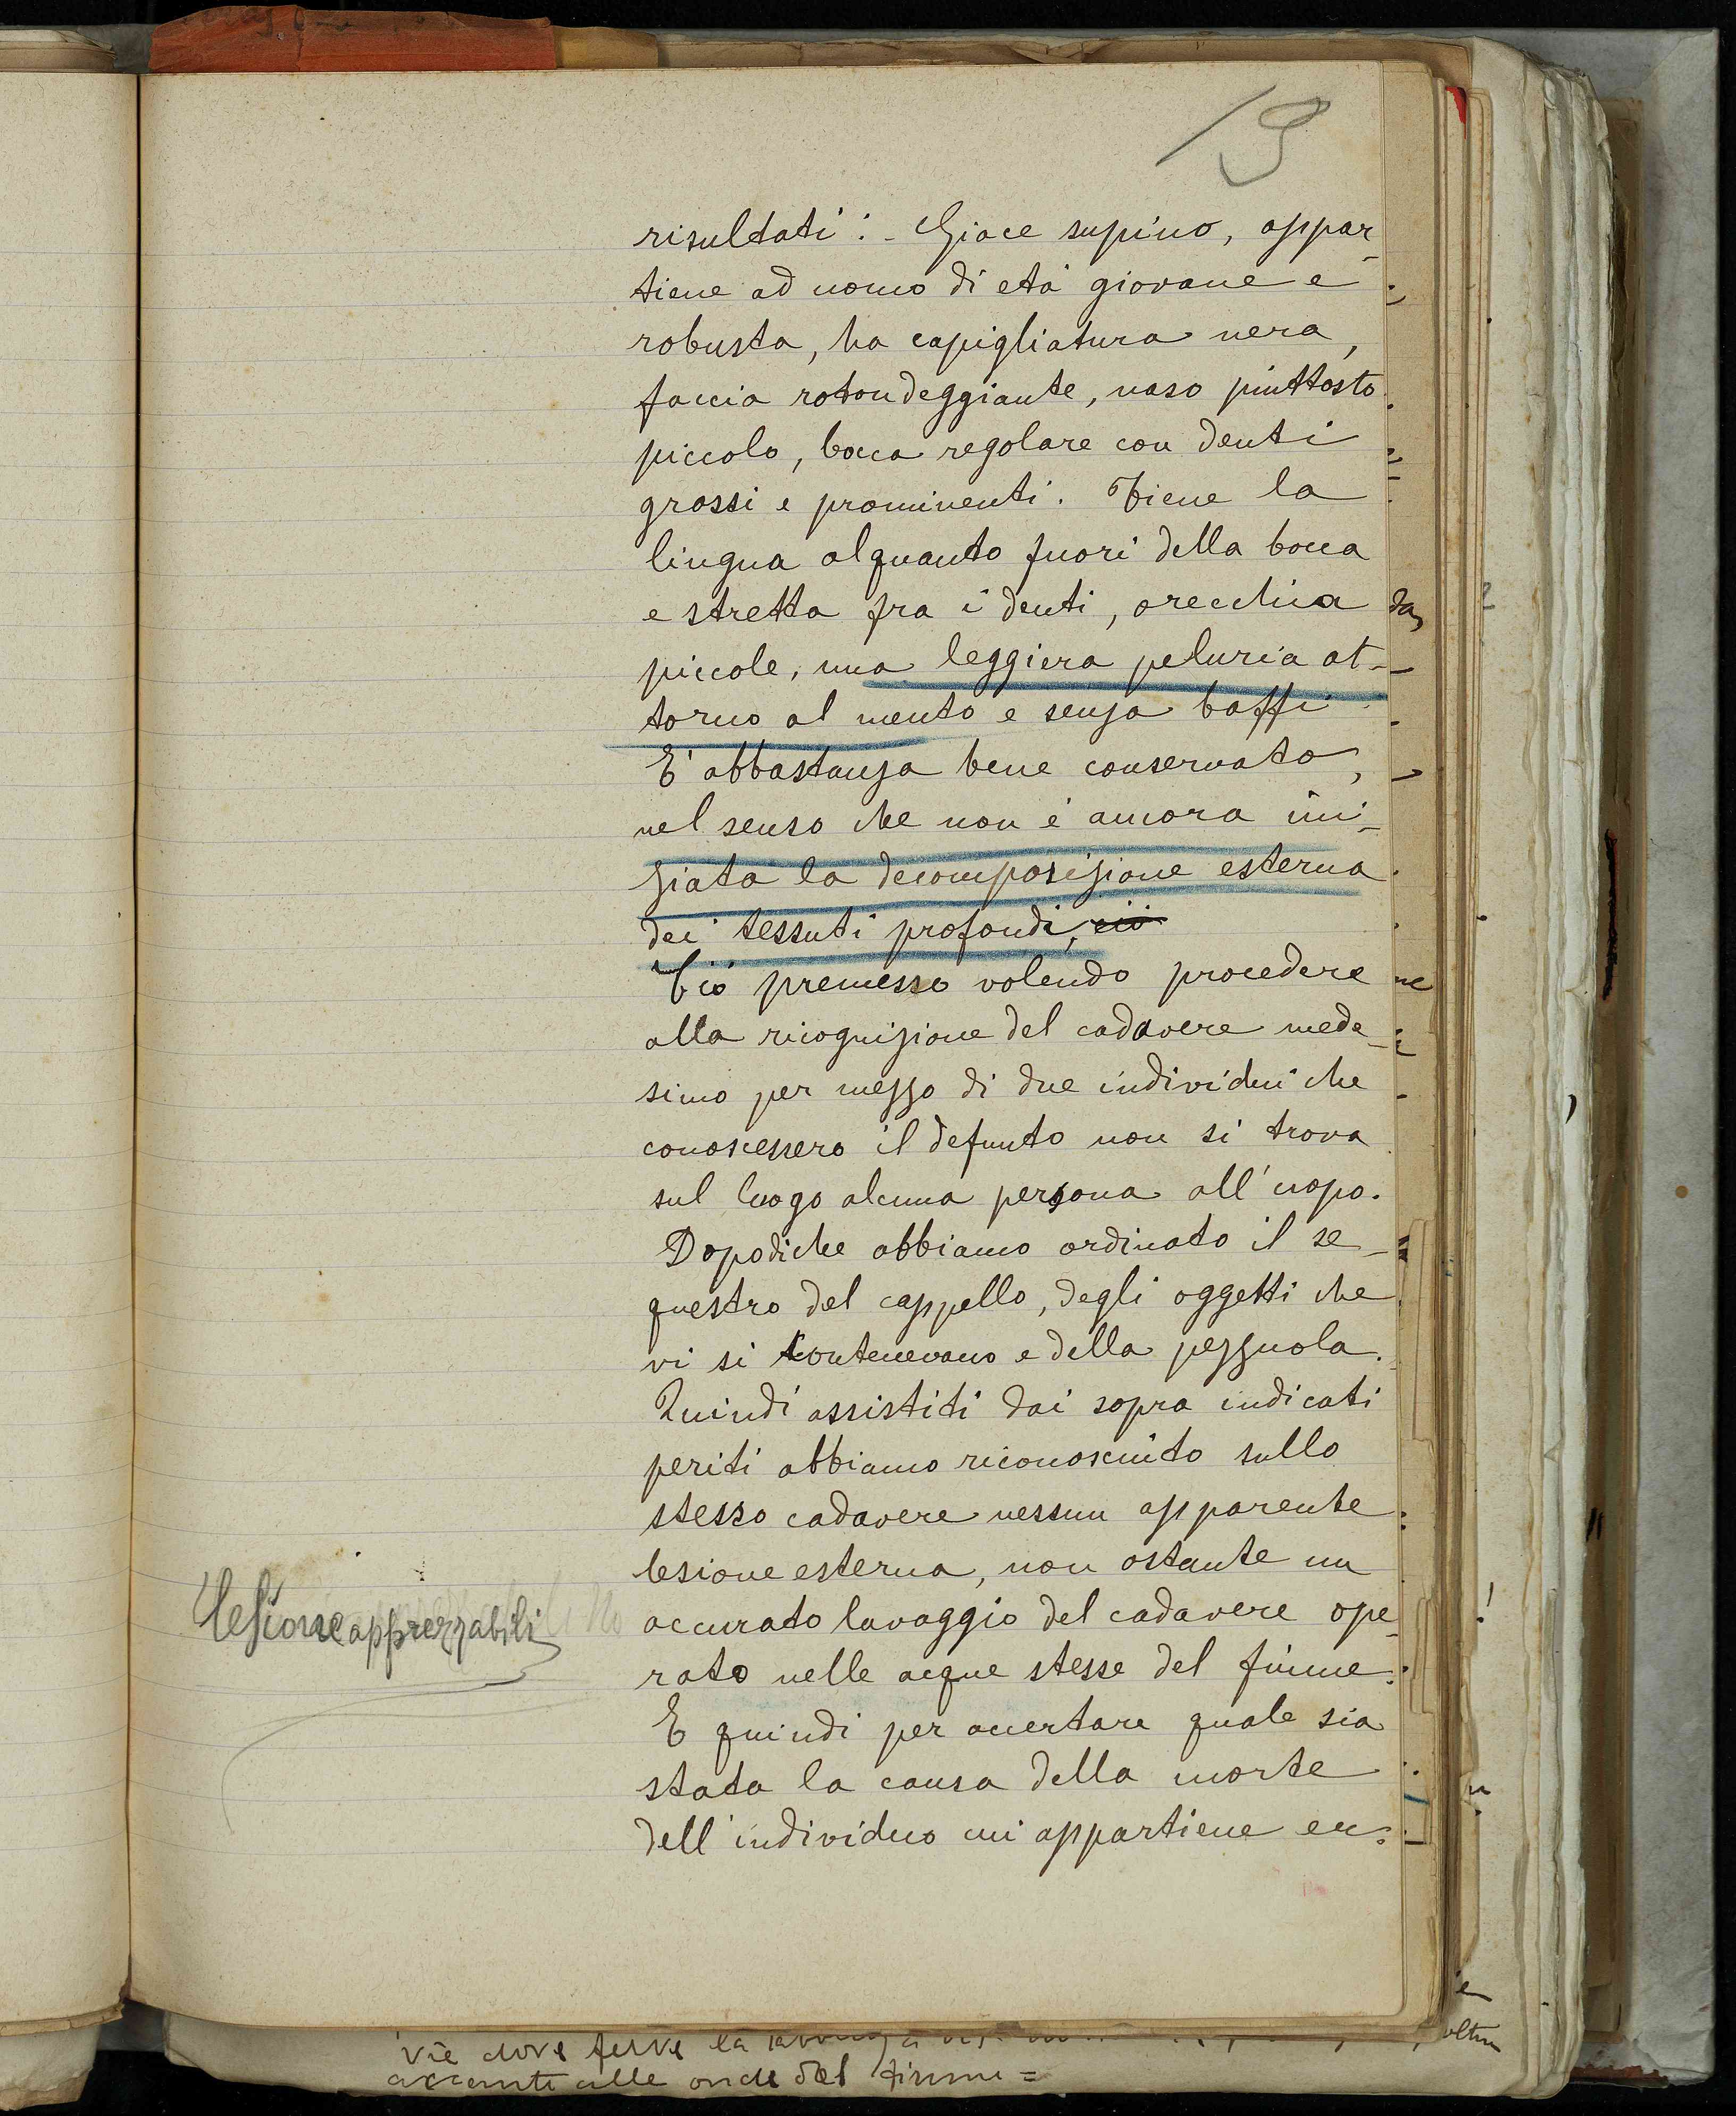 19
risultati: - Giace supino, appar-
tiene ad uomo di età giovane e
robusta, ha capigliatura nera,
faccia rotondeggiante, naso piuttosto
piccolo, bocca regolare con denti
grossi e prominenti. Tiene la
lingua alquanto fuori della bocca
e stretta fra i denti, orecchia
piccole, una leggiera peluria at-
torno al mento e senza baffi.
E' abbastanza bene conservato,
nel senso che non è ancora ini-
ziata la decomposizione esterna
dei tessuti profondi, ciò
Ciò premesso volendo procedere
alla ricognizione del cadavere mede-
simo per mezzo di due individui che
conoscessero il defunto non si trova
sul luogo alcuna persona all'uopo.
Dopodiche abbiamo ordinato il se-
questro del cappello, degli oggetti che
vi si contenevano e della pezzuola.
Quindi assistiti dai sopra indicati
periti abbiamo riconosciuto sullo
stesso cadavere nessun apparente
lesione esterna, non ostante un
accurato lavaggio del cadavere ope-
rato nelle acque stesse del fiume.
E quindi per accertare quale sia
stata la causa della morte
dell'individuo cui appartiene en-
lesione apprezzabili
vie dove ferve la
alle onde del fiume =